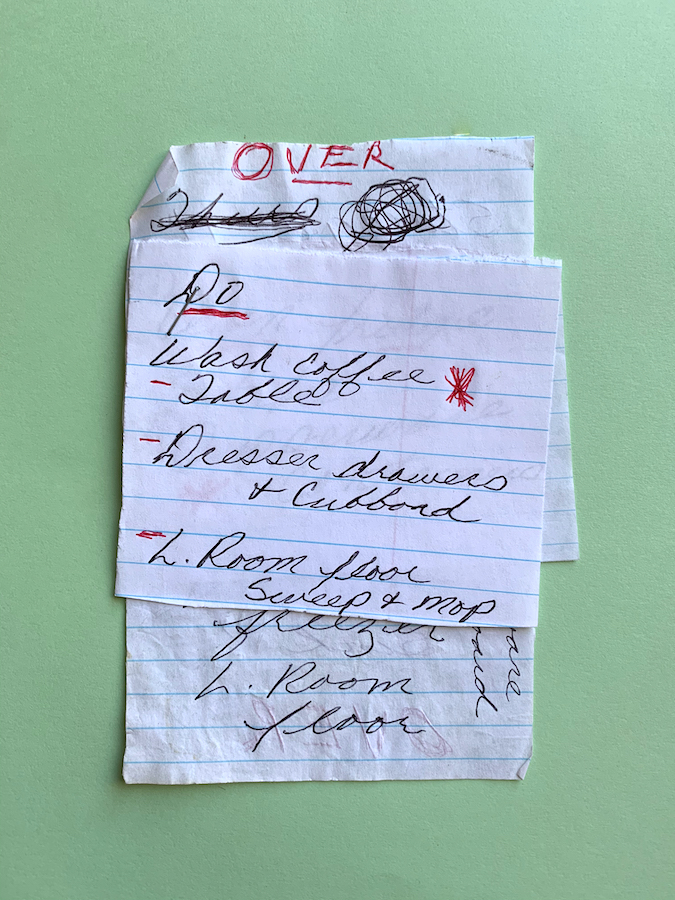 OVER
Do
Wash coffee
- Table
- Dresser drawers
& Cubboard
- L. Room floor
Sweep & Mop
freezer
L. Room
floor